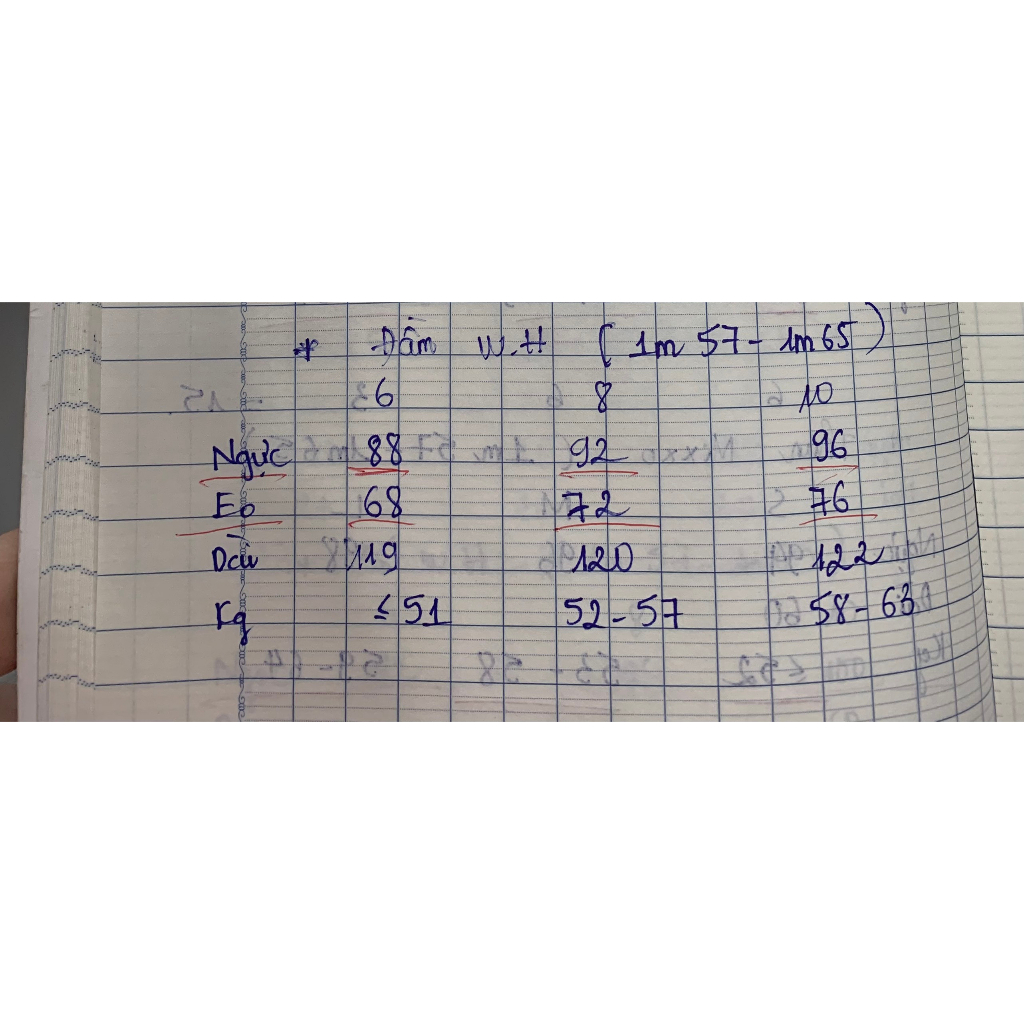 * Đầm W.H ( 1m 57 - 1m 65 )
6 8 10
Ngực 88 92 96
Eo 68 72 76
Dài 119 120 122
Kg ≤ 51 52 - 57 58 - 63